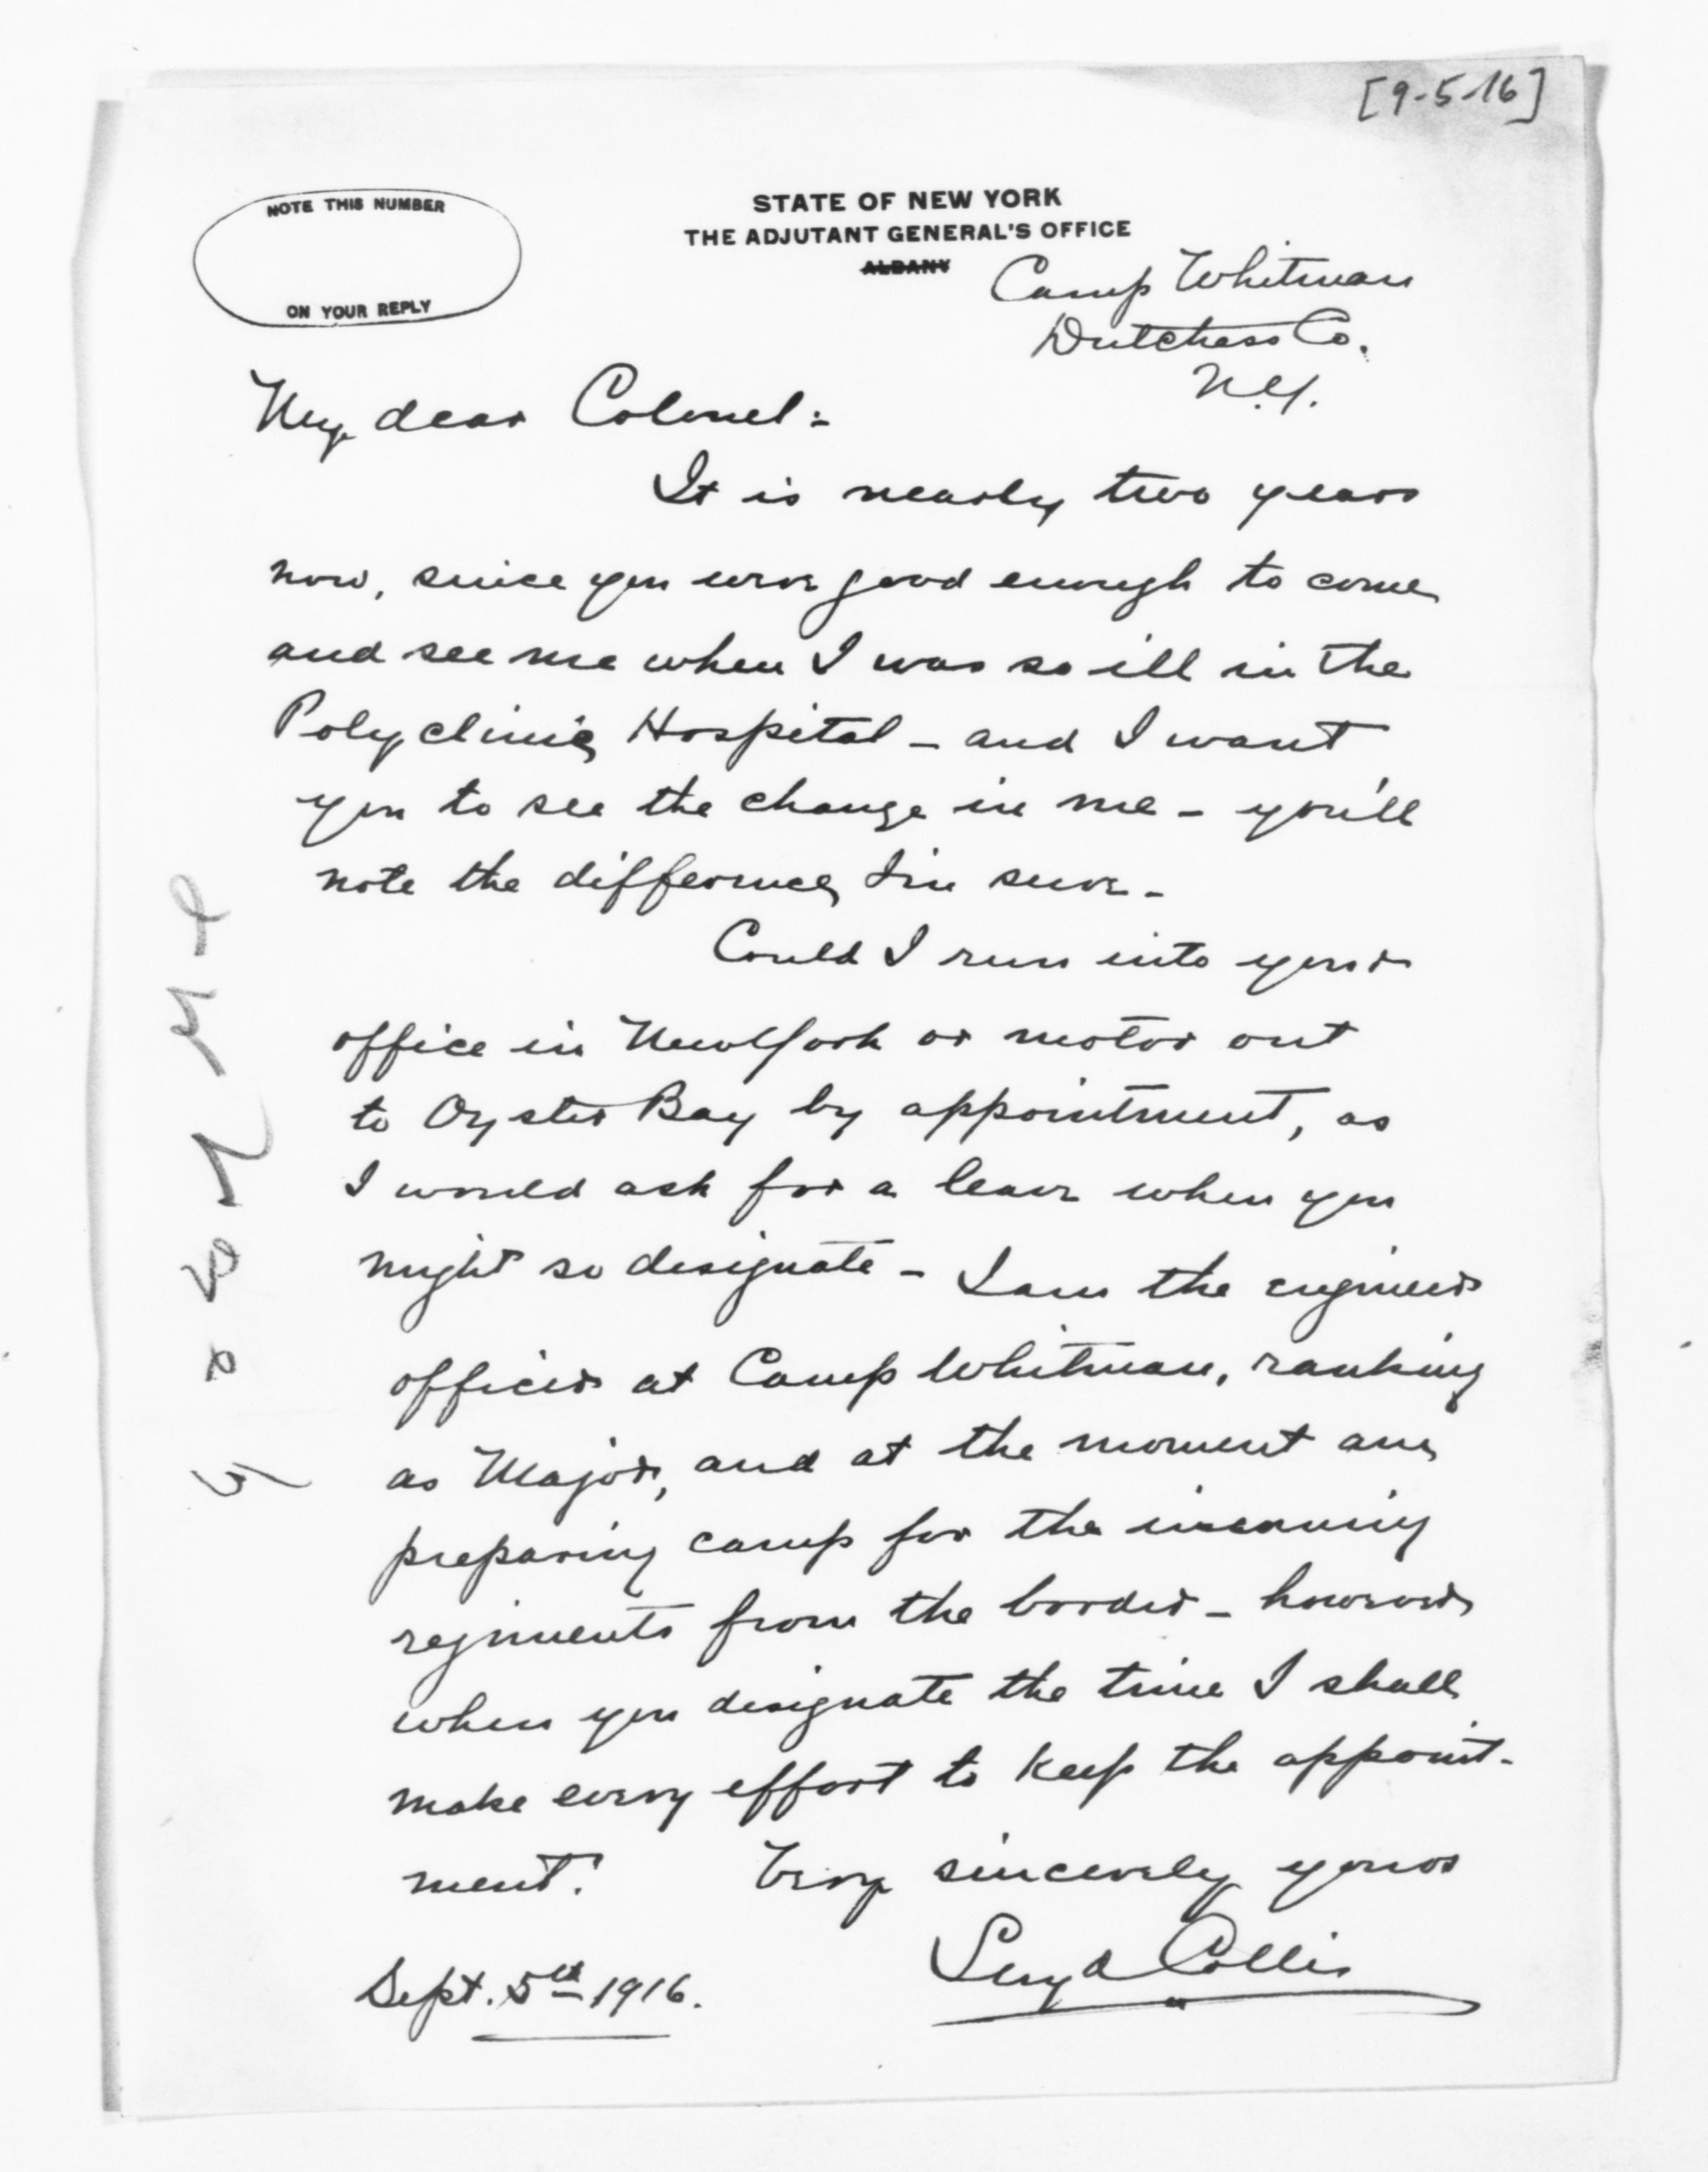 [9-5-16]
NOTE THIS NUMBER
ON YOUR REPLY
STATE OF NEW YORK
THE ADJUTANT GENERAL'S OFFICE
ALBANY
Camp Whitman
Dutchess Co.
N.Y.
My dear Colonel:
It is nearly two years
now, since you were good enough to come
and see me when I was so ill in the
Polyclinic Hospital - and I want
you to see the change in me - you'll
note the difference, I'm sure -
Could I run into your
office in New York or motor out
to Oyster Bay by appointment, as
I would ask for a leave when you
might so designate - I am the engineer
officer at Camp Whitman, ranking
as Major, and at the moment am
preparing camp for the incoming
regiments from the border - however
when you designate the time I shall
make every effort to keep the appoint-
ment. Very sincerely yours
Lloyd Collis
Sept. 5th 1916.